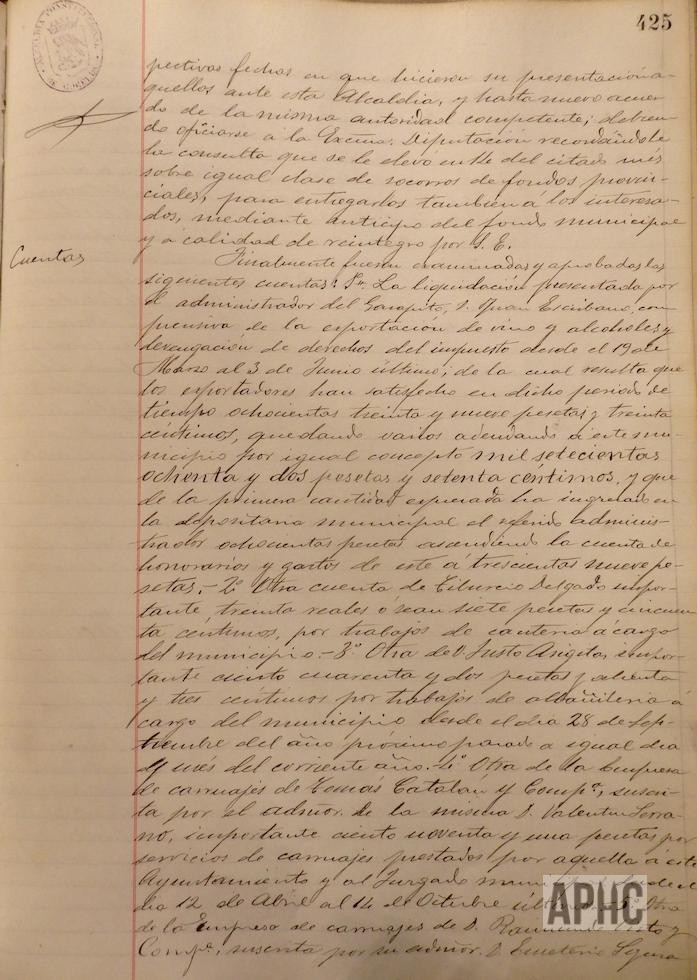 425
pectivas fechas en que hicieron su presentación a-
quellos ante esta Alcaldia, y hasta nuevo acuer-
do de la misma autoridad competente; debien-
do oficiarse á la Excma. Diputación recordándole
la consulta que se le elevó en 14 del citado mes
sobre igual clase de socorros de fondos provin-
ciales, para entregarlos tambien a los interesa-
dos, mediante anticipo del fondo municipal
y á calidad de reintegro por S. E.
Cuentas
Finalmente fueron examinadas y aprobadas las
siguientes cuentas: 1ª La liquidación presentada por
el administrador del Garapito, D. Juan Escribano, com-
prensiva de la exportación de vino y alcoholes y
devengación de derechos del impuesto desde el 19 de
Marzo al 3 de Junio último; de la cual resulta que
los exportadores han satisfecho en dicho periodo de
tiempo ochocientas treinta y nueve pesetas y treinta
céntimos, quedando varios adeudando á este mu-
nicipio por igual concepto mil setecientas
ochenta y dos pesetas y setenta céntimos, y que
de la primera cantidad expresada ha ingresado en
la depositaria municipal el referido adminis-
trador ochocientas pesetas ascendiendo la cuenta de
honorarios y gastos de este á trescientas nueve pe-
setas.- 2ª Otra cuenta de Tiburcio Delgado impor-
tante treinta reales ó sean siete pesetas y cincuen-
ta céntimos, por trabajos de canteria á cargo
del municipio.- 3ª Otra de D. Justo impor-
tante ciento cuarenta y dos pesetas y ochenta
y tres céntimos por trabajos de albañileria á
cargo del municipio desde el dia 28 de Sep-
tiembre del año próximo pasado a igual dia
y mes del corriente año. 4ª Otra de la Empresa
de carruajes de Tomás Catalán y Compª, suscri-
ta por el admor. de la misma D. Valentin Serra-
no, importante ciento noventa y una pesetas por
servicios de carruajes prestados por aquella á este
Ayuntamiento y al Juzgado desde el
dia 12 de Abril al 14 de Octubre último. 5ª Otra
de la Empresa de carruajes de D. Raimundo y
Compª, suscrita por su admor. D. Emeterio Segura
APHC